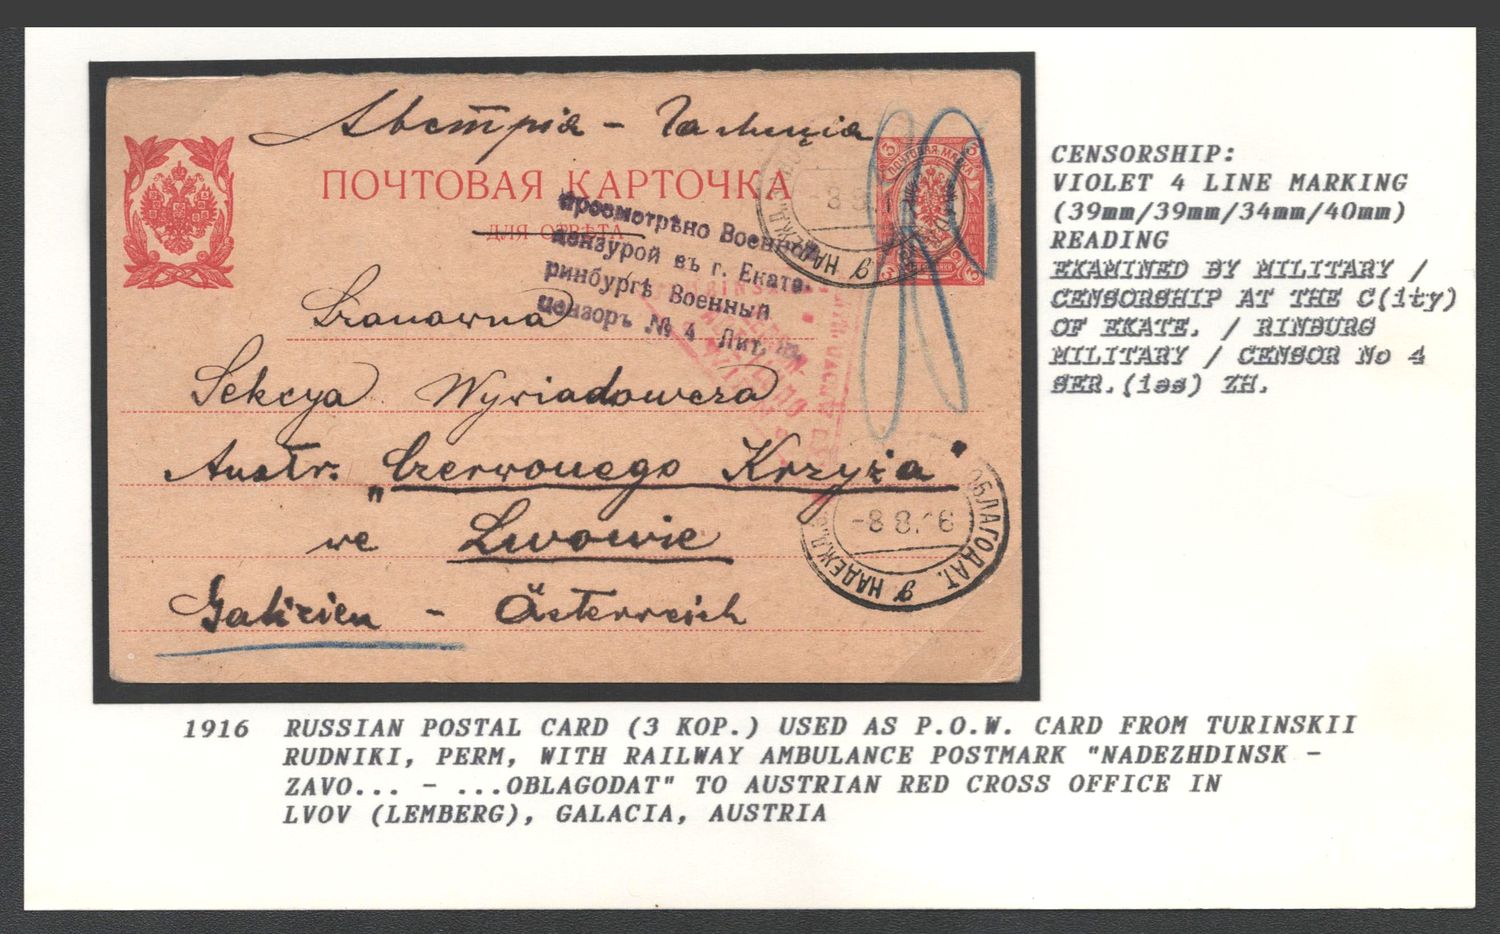 Австрія - Галиція
ПОЧТОВАЯ КАРТОЧКА
ДЛЯ ОТВѢТА
ПОЧТОВАЯ МАРКА
3 3
Просмотрѣно Военной
цензурой въ г. Екате.
ринбургѣ Военный
цензоръ № 4 Лит.
Szanowna
Sekcya Wywiadowcza
Austr. "Czerwonego Krzyża"
we Lwowie
Galizien - Österreich
НАДЕЖД.
-8 8.1
НАДЕЖД.
ОБЛАГОДАТ.
-8 8.16
CENSORSHIP:
VIOLET 4 LINE MARKING
(39mm/39mm/34mm/40mm)
READING
EXAMINED BY MILITARY /
CENSORSHIP AT THE C(ity)
OF EKATE. / RINBURG
MILITARY / CENSOR No 4
SER.(ies) ZH.
1916 RUSSIAN POSTAL CARD (3 KOP.) USED AS P.O.W. CARD FROM TURINSKII
RUDNIKI, PERM, WITH RAILWAY AMBULANCE POSTMARK "NADEZHDINSK -
ZAVO... - ...OBLAGODAT" TO AUSTRIAN RED CROSS OFFICE IN
LVOV (LEMBERG), GALACIA, AUSTRIA